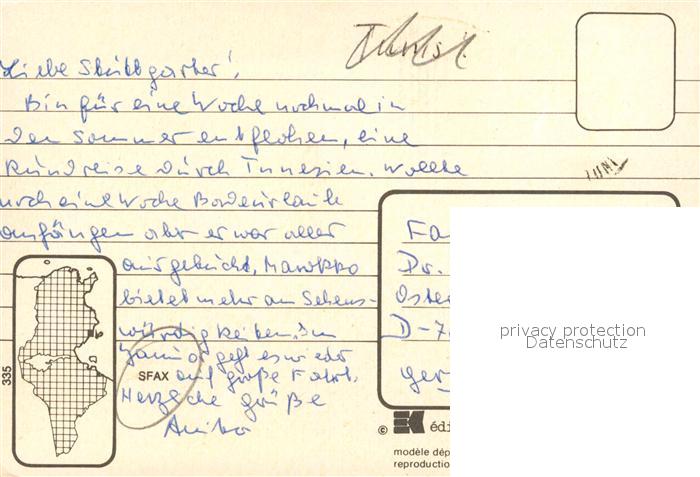 Liebe Stuttgarter!,
Bin für eine Woche nochmal in
den Sommer entflohen, eine
Rundreise durch Tunesien. Wollte
noch eine Woche Badeurlaub
anhängen aber er war alles
ausgebucht, Marokko
bietet mehr an Sehens-
würdigkeiten. Im
Januar geht es wieder
auf große Fahrt.
Herzliche Grüße
SFAX
335
Fa
Dr.
Oster
D-7
Ger
privacy protection
Datenschutz
© EK édi
modèle dép
reproductio